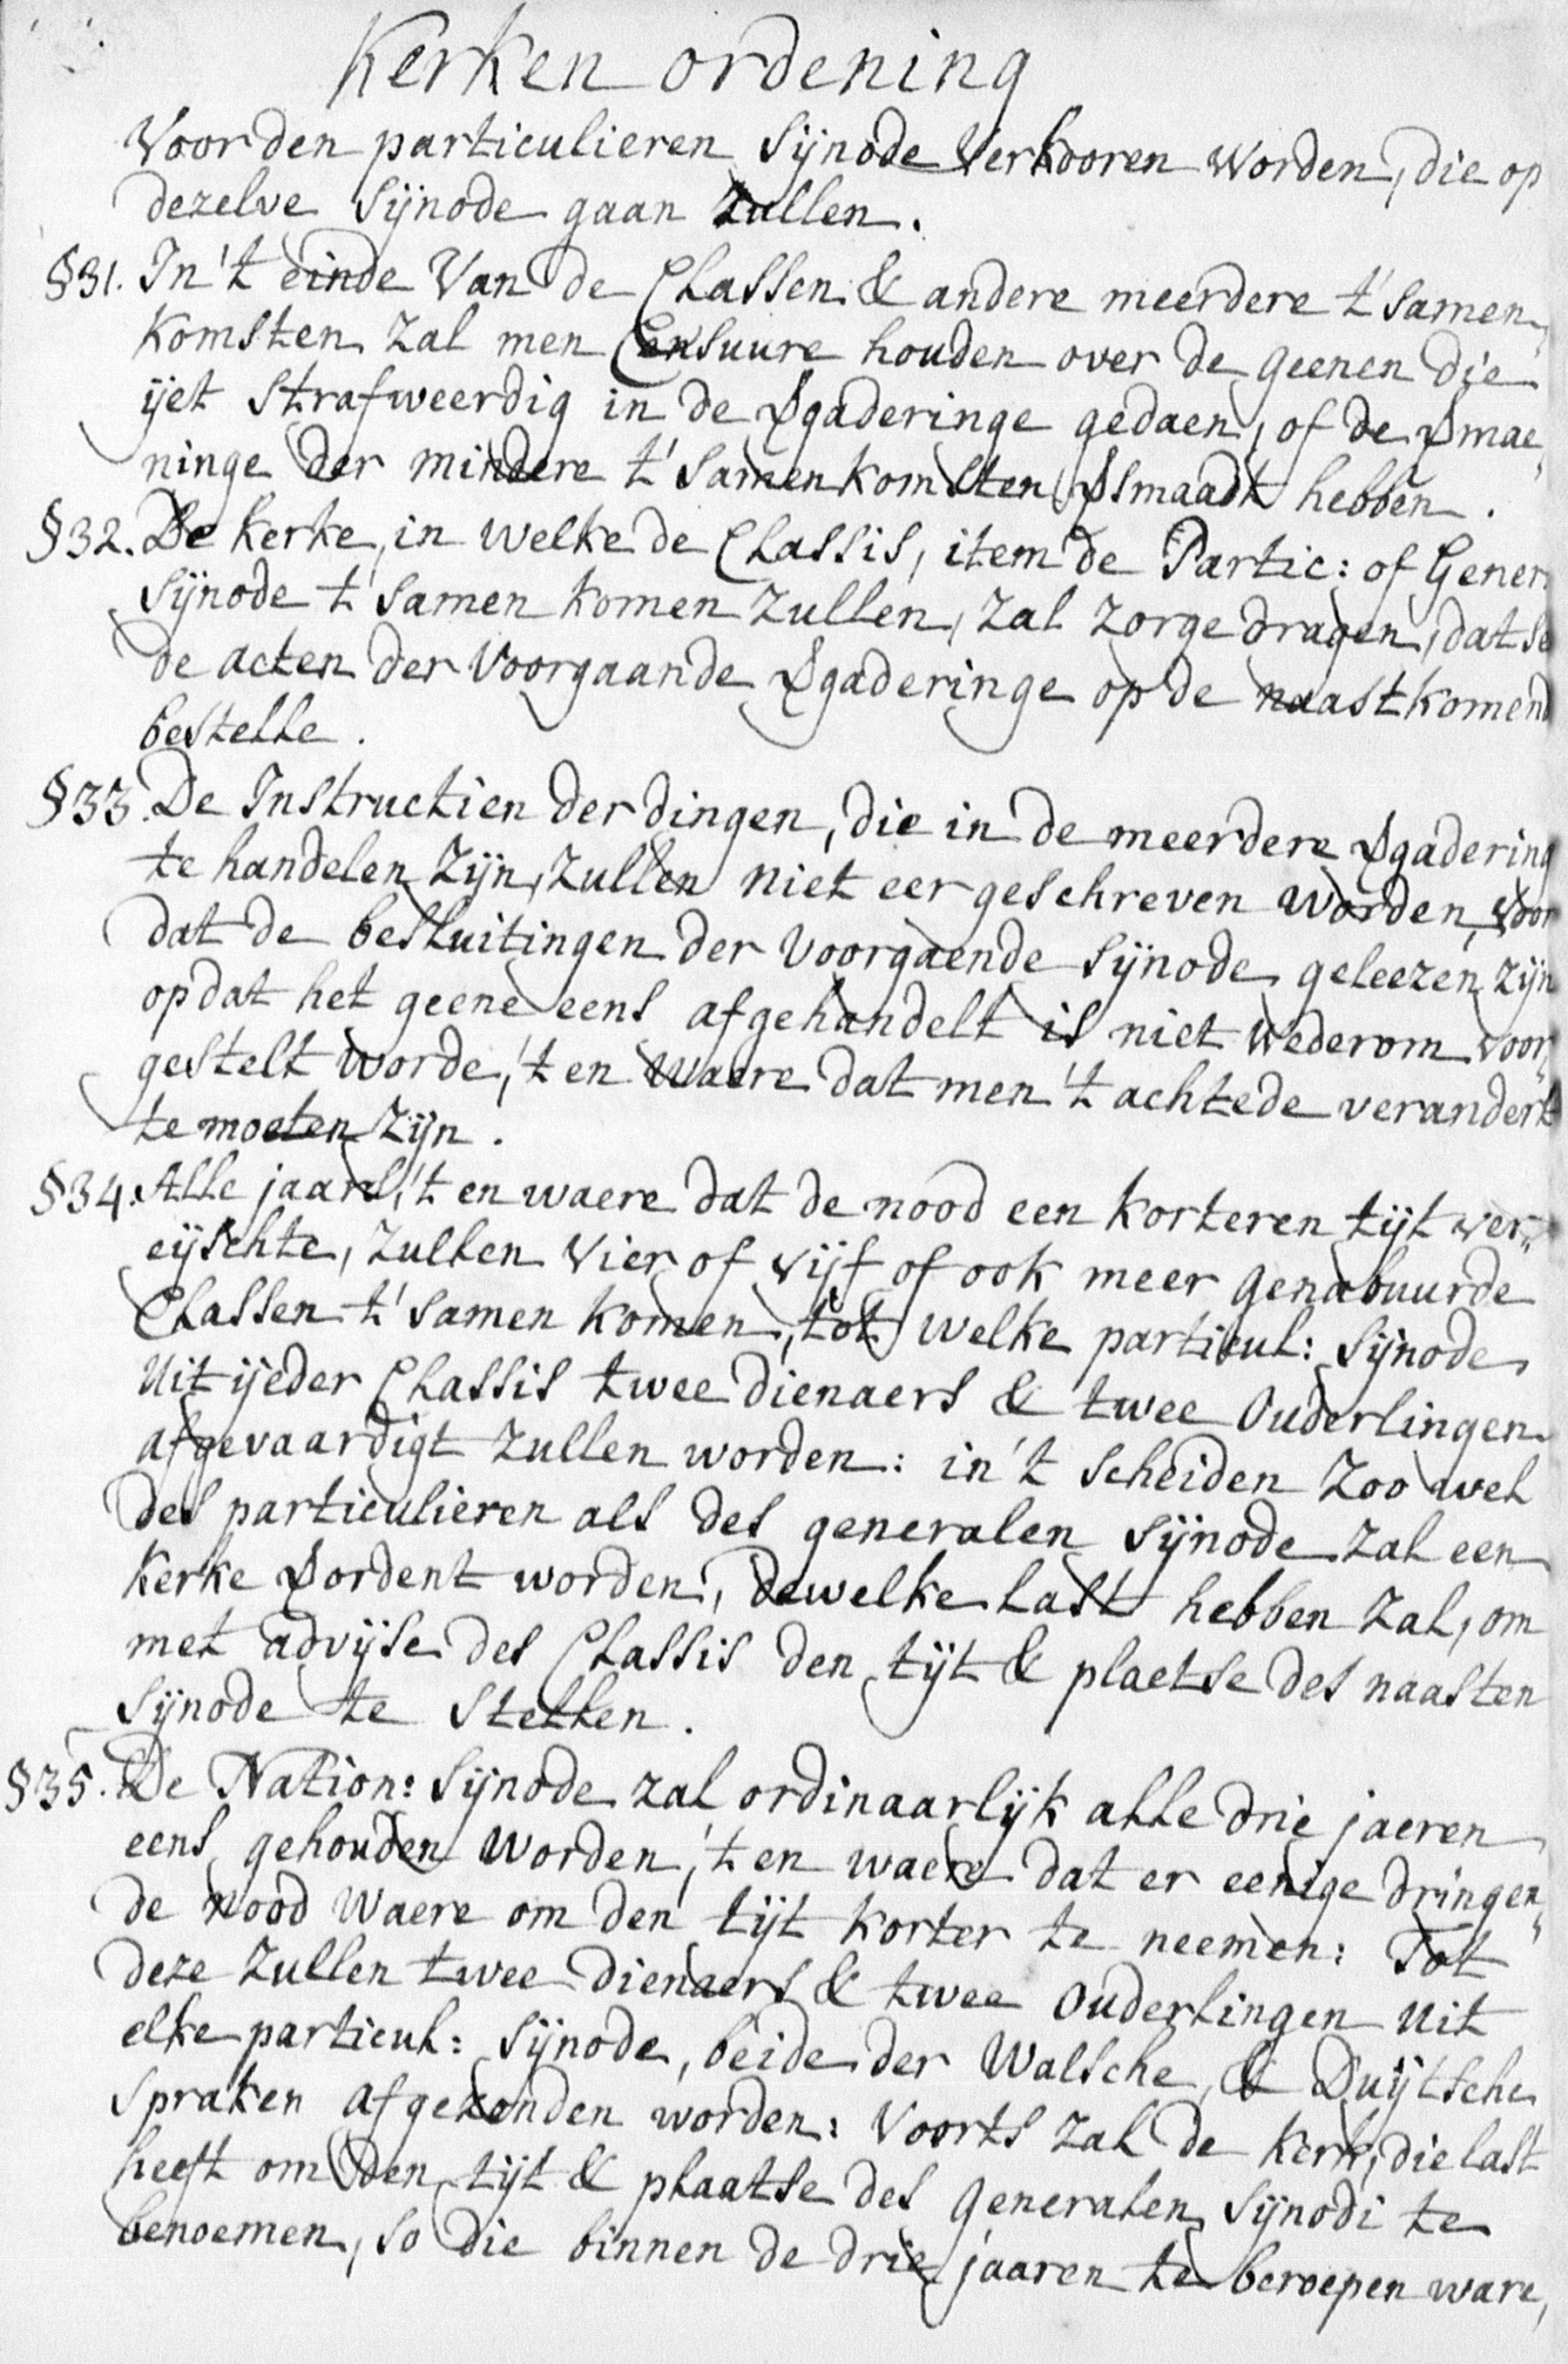 Kerken ordening
Voor den particulieren Sijnode Verkooren worden, die op
dezelve Sijnode gaan zullen.
§31. In 't einde Van de Classen & andere meerdere t'samen„
Komsten zal men Censuure houden over de geenen die
ijet strafweerdig in de Vgaderinge gedaen, of de Vmae„
ninge der mindere t'samenkomsten Vsmaadt hebben.
§32. De Kerke, in welke de Classis, item de Partic: of Gener.
Sijnode t'samen komen zullen, zal zorge dragen, dat se
de acten der Voorgaande Vgaderinge op de naastkomend
bestelle.
§33. De Instructien der dingen, die in de meerdere Vgadering
te handelen zijn, zullen niet eer geschreven worden, voor
dat de besluitingen der Voorgaende Sijnode geleezen zijn
opdat het geene eens afgehandelt is niet wederom voor„
gestelt worde, 't en waere dat men 't achtede verandert
te moeten zijn.
§34. Alle jaars, 't en waere dat de nood een korteren tijt ver„
eijschte, zullen vier of vijf of ook meer genabuurde
Classen t'samen komen, tot welke particul: Sijnode
Uit ijeder Classis twee dienaers & twee Ouderlingen
afgevaardigt zullen worden: in 't scheiden zoo wel
des particulieren als des generalen Sijnode zal een
Kerke Vordent worden, dewelke last hebben zal, om
met advijse des Classis den tijt & plaetse des naasten
Sijnode te stellen.
§35. De Nation: Sijnode zal ordinaarlijk alle drie jaeren
eens gehouden worden, 't en waere dat er eenige dringen„
de nood Waere om den tijt korter te neemen: Tot
deze zullen twee dienaers & twee Ouderlingen Uit
elke particul: Sijnode, beide der Walsche, & Duijtsche
spraken afgezonden worden: Voorts zal de Kerk, die last
heeft om den tijt & plaatse des Generalen Sijnodi te
benoemen, so die binnen de drie jaaren te beroepen ware,